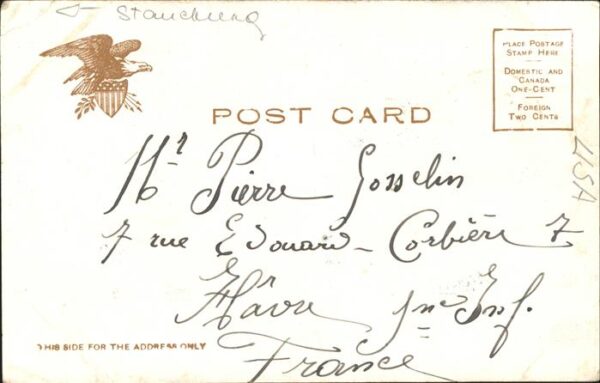 PLACE POSTAGE
STAMP HERE
DOMESTIC AND
CANADA
ONE-CENT
FOREIGN
TWO CENTS
POST CARD
USA
Mr Pierre Gosselin
7 rue Edouard-Corbière 7
Hâvre Sne Inf.
France
THIS SIDE FOR THE ADDRESS ONLY